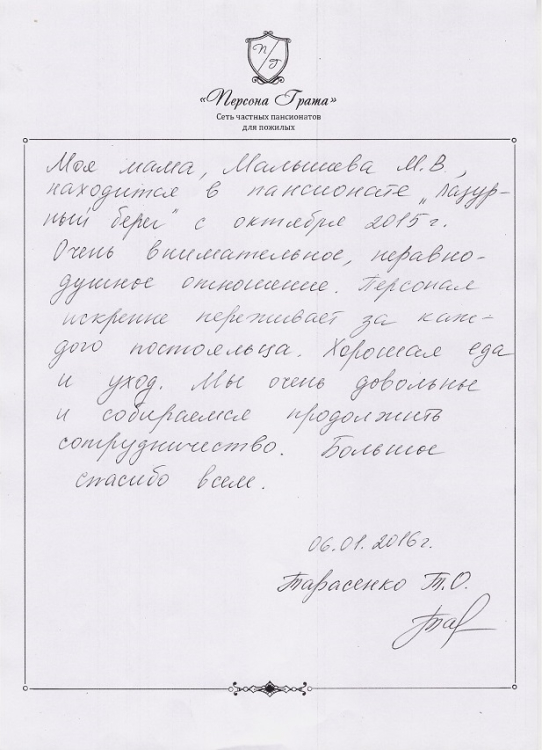 П
Г
«Персона Грата»
Сеть частных пансионатов
для пожилых
Моя мама, Малышева М.В.,
находится в пансионате „Лазур-
ный берег" с октября 2015г.
Очень внимательное, неравно-
душное отношение. Персонал
искренне переживает за каж-
дого постояльца. Хорошая еда
и уход. Мы очень довольны
и собираемся продолжить
сотрудничество. Большое
спасибо всем.
06.01.2016г.
Тарасенко Т.О.
Тар